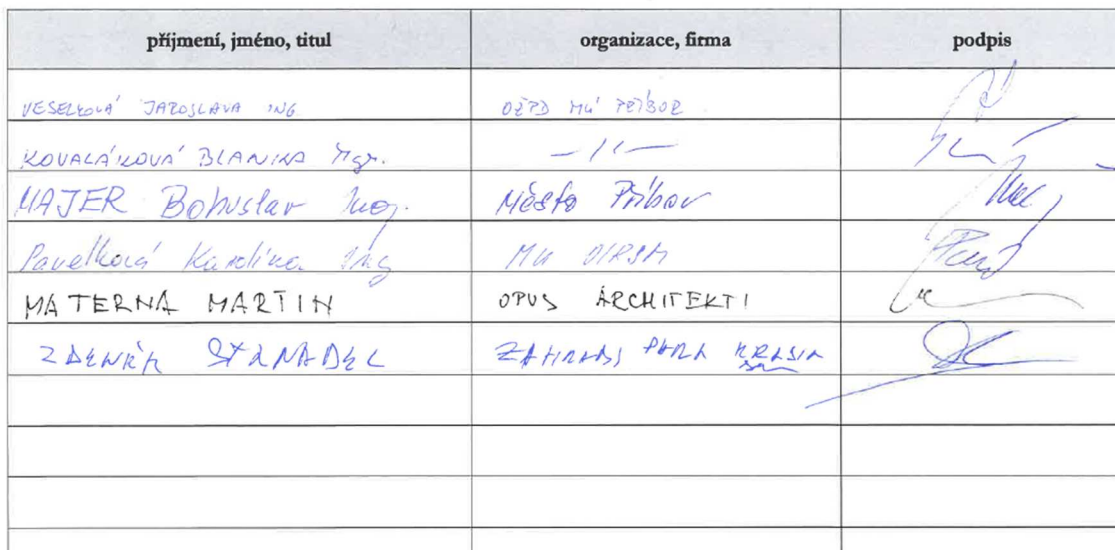 příjmení, jméno, titul organizace, firma podpis
VESELKOVÁ JAROSLAVA ING OŽPD MÚ PŘÍBOR
KOVALÁKOVÁ BLANKA Mgr. —//—
MAJER Bohuslav Ing. Město Příbor
Pavelková Karolína Ing MU
MATERNA MARTIN OPUS ARCHITEKTI
ZDENĚK ZAHRADY PARK